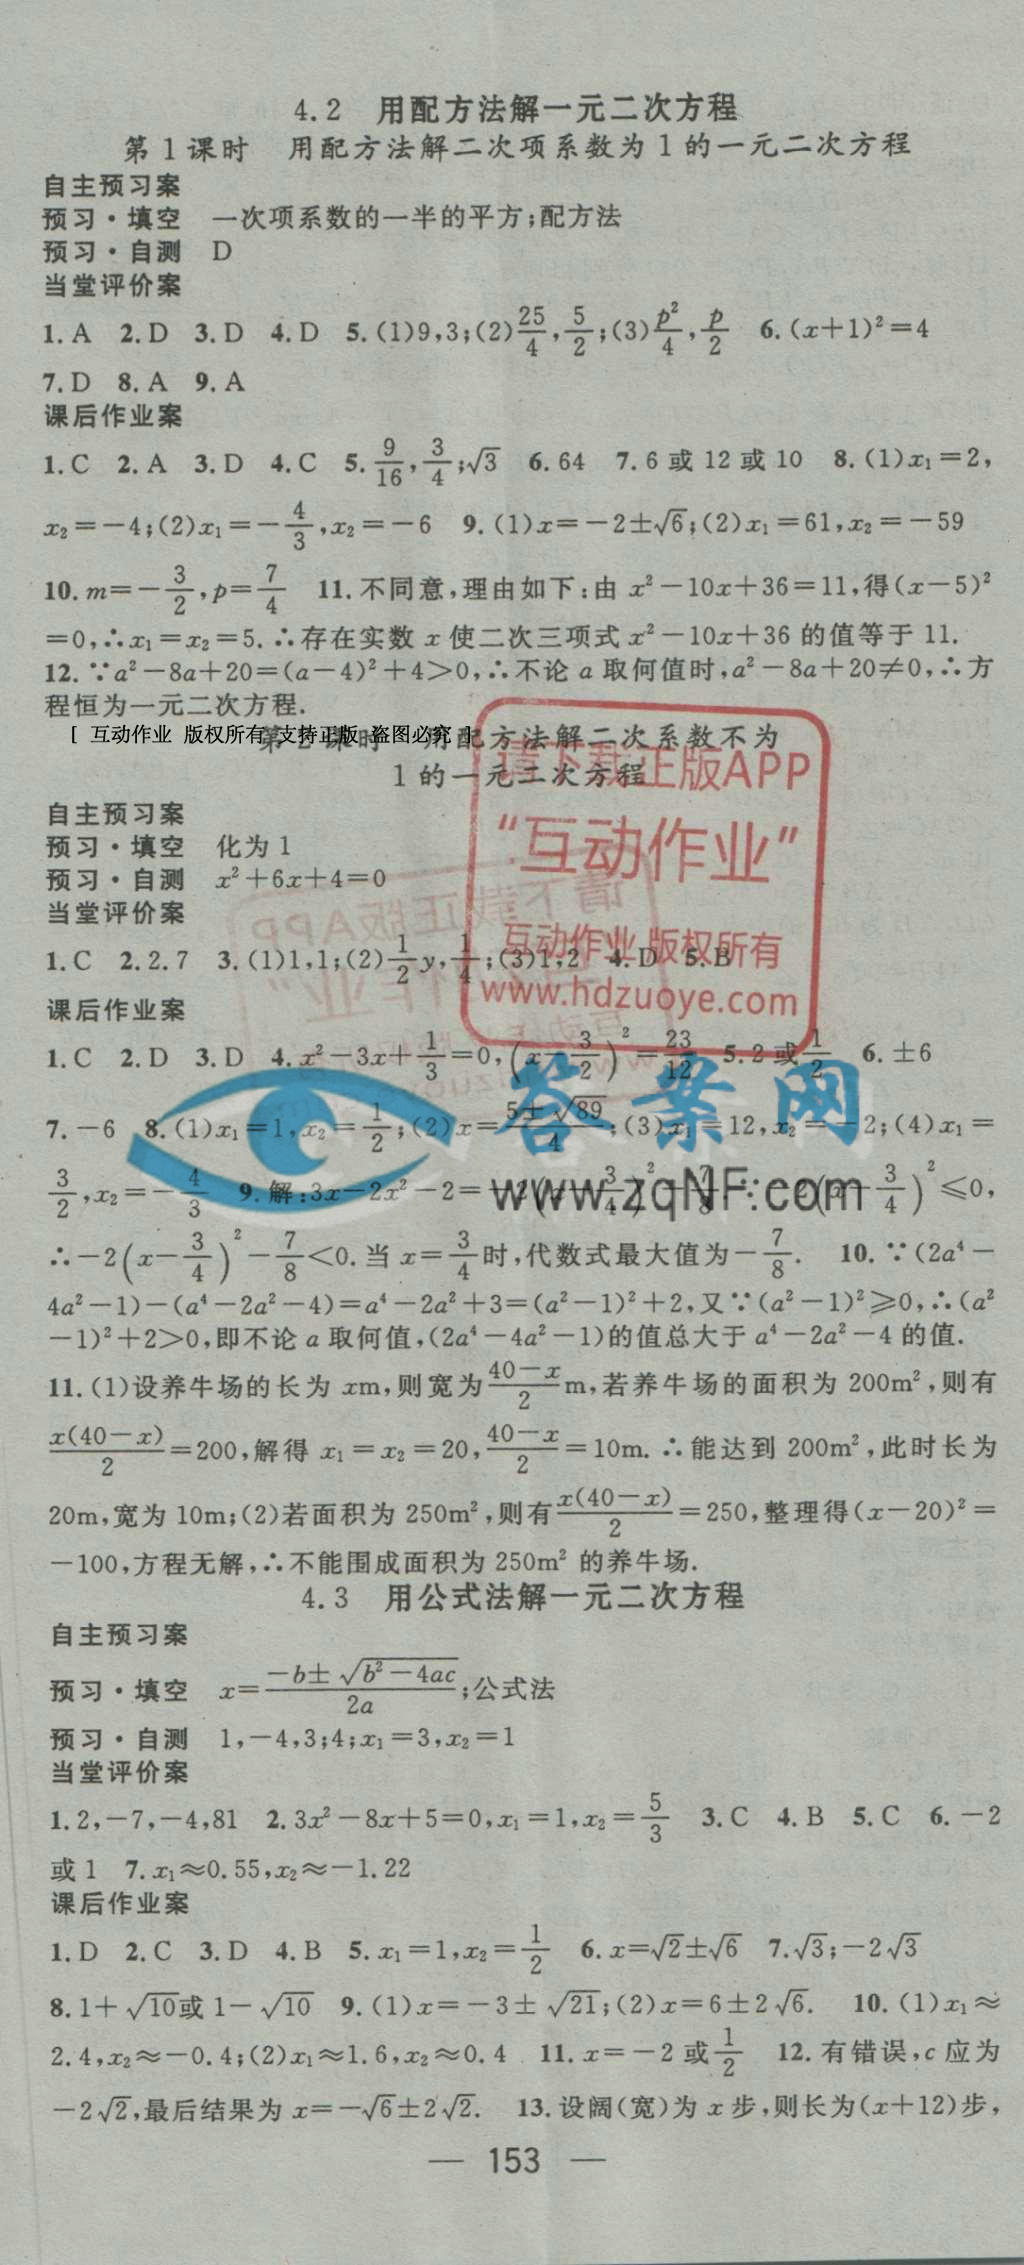 4.2 用配方法解一元二次方程
第1课时 用配方法解二次项系数为1的一元二次方程
自主预习案
预习·填空 一次项系数的一半的平方;配方法
预习·自测 D
当堂评价案
1.A 2.D 3.D 4.D 5.(1)9,3;(2)25/4,5/2;(3)p²/4,p/2 6.(x+1)²=4
7.D 8.A 9.A
课后作业案
1.C 2.A 3.D 4.C 5.9/16,3/4;√3 6.64 7.6或12或10 8.(1)x₁=2,
x₂=-4;(2)x₁=-4/3,x₂=-6 9.(1)x=-2±√6;(2)x₁=61,x₂=-59
10.m=-3/2,p=7/4 11.不同意,理由如下:由x²-10x+36=11,得(x-5)²
=0,∴x₁=x₂=5.∴存在实数x使二次三项式x²-10x+36的值等于11.
12.∵a²-8a+20=(a-4)²+4>0,∴不论a取何值时,a²-8a+20≠0,∴方
程恒为一元二次方程.
[ 互动作业 版权所有 支持正版 盗图必究 ]
第2课时 用配方法解二次系数不为
1的一元二次方程
请下载正版APP
"互动作业"
互动作业 版权所有
www.hdzuoye.com
自主预习案
预习·填空 化为1
预习·自测 x²+6x+4=0
当堂评价案
1.C 2.2.7 3.(1)1,1;(2)1/2y,1/4;(3)1,2 4.D 5.B
课后作业案
1.C 2.D 3.D 4.x²-3x+1/3=0,(x-3/2)²=23/12 5.2或1/2 6.±6
答案网
www.zqNF.com
7.-6 8.(1)x₁=1,x₂=1/2;(2)x=5±√89/4;(3)x₁=12,x₂=-2;(4)x₁=
3/2,x₂=-4/3 9.解:3x-2x²-2=-2(x-3/4)²-7/8.∵-2(x-3/4)²≤0,
∴-2(x-3/4)²-7/8<0.当x=3/4时,代数式最大值为-7/8. 10.∵(2a⁴-
4a²-1)-(a⁴-2a²-4)=a⁴-2a²+3=(a²-1)²+2,又∵(a²-1)²≥0,∴(a²
-1)²+2>0,即不论a取何值,(2a⁴-4a²-1)的值总大于a⁴-2a²-4的值.
11.(1)设养牛场的长为xm,则宽为40-x/2m,若养牛场的面积为200m²,则有
x(40-x)/2=200,解得x₁=x₂=20,40-x/2=10m.∴能达到200m²,此时长为
20m,宽为10m;(2)若面积为250m²,则有x(40-x)/2=250,整理得(x-20)²=
-100,方程无解,∴不能围成面积为250m²的养牛场.
4.3 用公式法解一元二次方程
自主预习案
预习·填空 x=-b±√b²-4ac/2a;公式法
预习·自测 1,-4,3;4;x₁=3,x₂=1
当堂评价案
1.2,-7,-4,81 2.3x²-8x+5=0,x₁=1,x₂=5/3 3.C 4.B 5.C 6.-2
或1 7.x₁≈0.55,x₂≈-1.22
课后作业案
1.D 2.C 3.D 4.B 5.x₁=1,x₂=1/2 6.x=√2±√6 7.√3;-2√3
8.1+√10或1-√10 9.(1)x=-3±√21;(2)x=6±2√6. 10.(1)x₁≈
2.4,x₂≈-0.4;(2)x₁≈1.6,x₂≈0.4 11.x=-2或1/2 12.有错误,c应为
-2√2,最后结果为x=-√6±2√2. 13.设阔(宽)为x步,则长为(x+12)步,
— 153 —